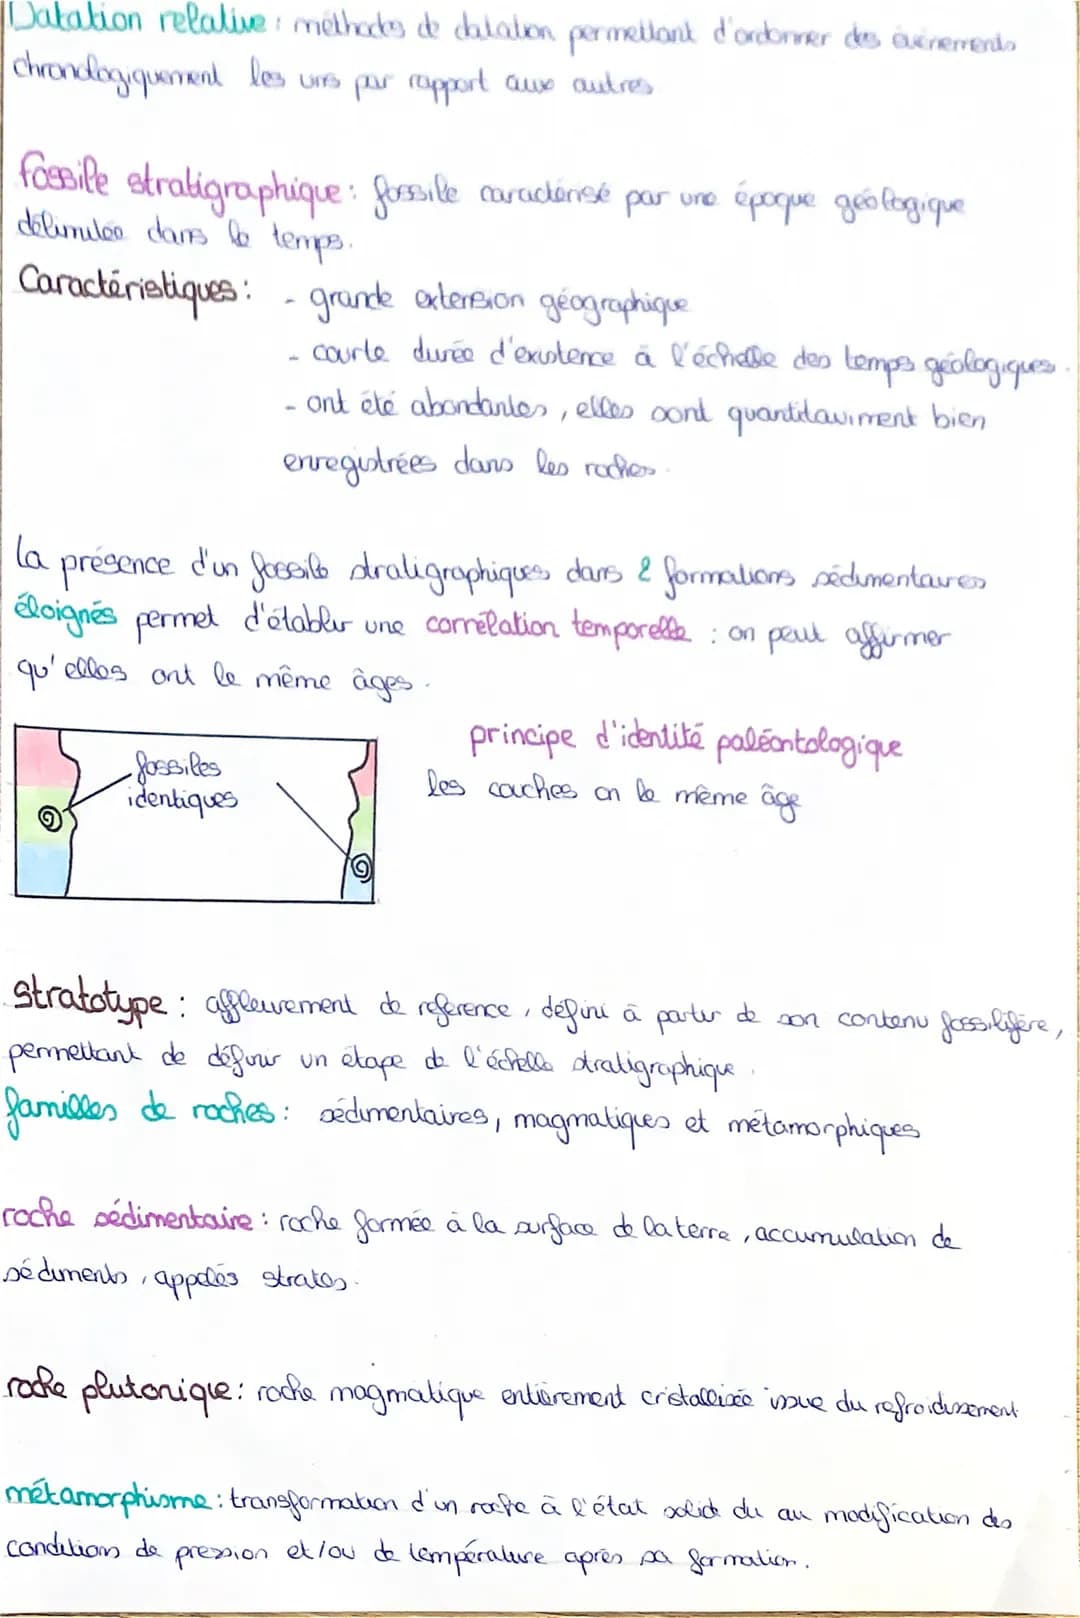 Datation relative : méthodes de datation permettant d'ordonner des évènements
chronologiquement les uns par rapport aux autres
fossile stratigraphique : fossile caractérisé par une époque géologique
délimitée dans le temps.
Caractéristiques : - grande extension géographique
- courte durée d'existence à l'échelle des temps géologiques.
- ont été abondantes, elles sont quantitaviment bien
enregistrées dans les roches.
la présence d'un fossile stratigraphiques dans 2 formations sédimentaires
éloignés permet d'établir une corrélation temporelle : on peut affirmer
qu'elles ont le même âges.
principe d'identité paléontologique
fossiles
identiques
les couches on le même âge
Stratotype : affleurement de reference, défini à partir de son contenu fossilifère,
permettant de définir un étape de l'échelle stratigraphique.
familles de roches : sédimentaires, magmatiques et métamorphiques
roche sédimentaire : roche formée à la surface de la terre, accumulation de
sédiments, appelés strates.
roche plutonique : roche magmatique entièrement cristallisée issue du refroidissement
métamorphisme : transformation d'un roche à l'état solide du au modification des
conditions de pression et/ou de température après sa formation.